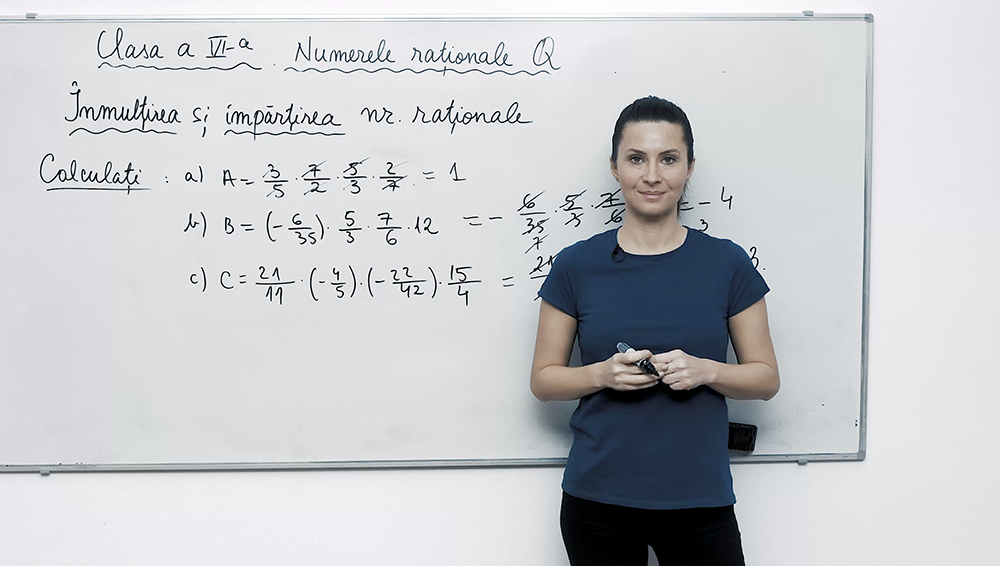 Clasa a VI-a. Numerele raționale Q
Înmulțirea și împărțirea nr. raționale
Calculați: a) A = 3/5 · 7/2 · 5/3 · 2/7 = 1
b) B = (-6/35) · 5/3 · 7/6 · 12 = - 6/35 · 5/3 · 7/6 = - 4
7 3
c) C = 21/11 · (-4/5) · (-22/42) · 15/4 = 21 3.